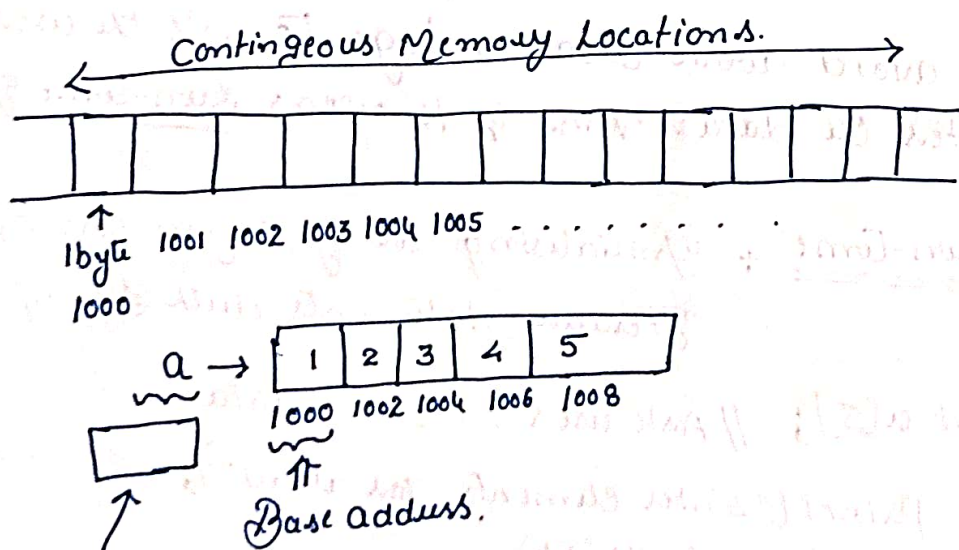 Contingeous Memory Locations.
1byte 1001 1002 1003 1004 1005 . . . . . . . . .
1000
a → 1 2 3 4 5
1000 1002 1004 1006 1008
Base address.